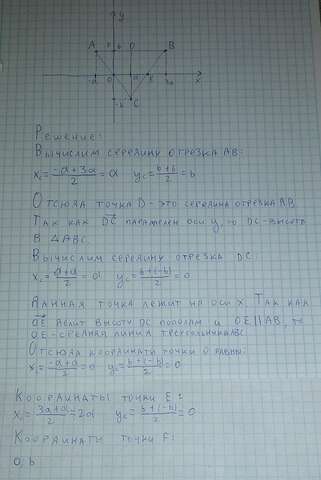 y
A F b D B
-a O a E 3a x
-b C
Решение:
Вычислим середину отрезка AB:
x₁ = (-a+3a)/2 = a y_c = (b+b)/2 = b
Отсюда точка D - это середина отрезка AB.
Так как DC параллелен оси y, то DC-высота
в △ABC.
Вычислим середину отрезка DC:
x_c = (a+a)/2 = a y_c = (b+(-b))/2 = 0
Данная точка лежит на оси x. Так как
OE делит высоту DC пополам и OE||AB, то
OE-средняя линия треугольника ABC.
Отсюда координаты точки O равны:
x₁ = (-a+a)/2 = 0 y_c = (b+(-b))/2 = 0
Координаты точки E:
x₁ = (3a+a)/2 = 2a y_c = (b+(-b))/2 = 0
Координаты точки F:
0, b